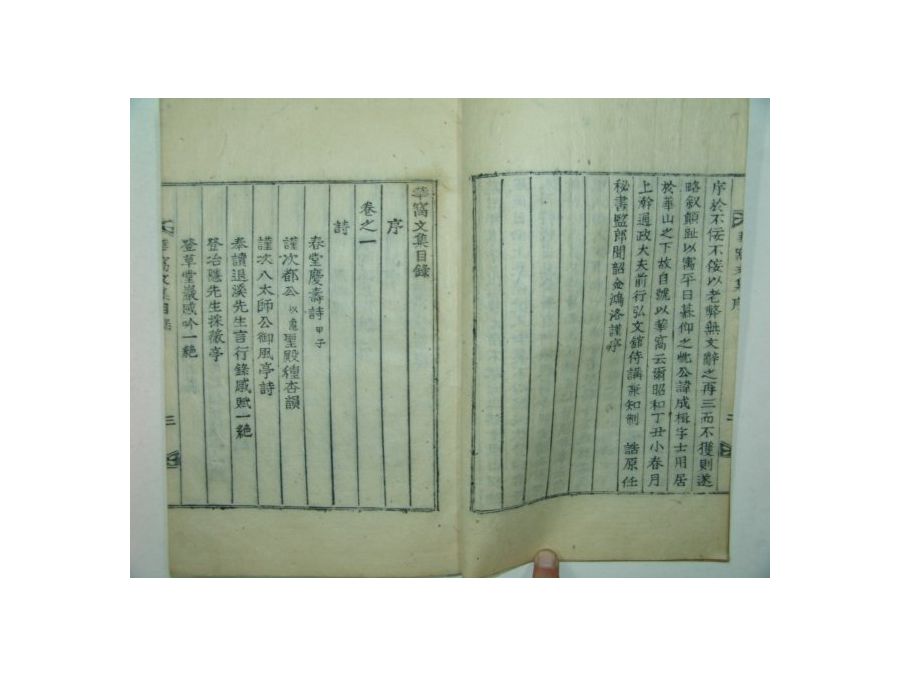 序於不佞不佞以老弊無文辭之再三而不獲則遂
略叙顛趾以寓平日慕仰之忱公諱成楫字士用居
於華山之下故自號以華窩云爾昭和丁丑小春月
上澣通政大夫前行弘文館侍講兼知制 誥原任
秘書監郎聞韶金鴻洛謹序
華窩文集序
二
華窩文集目錄
序
卷之一
詩
春堂慶壽詩 甲子
謹次都公 以 聖殿種杏韻
謹次八太師公御風亭詩
奉讀退溪先生言行錄感賦一絶
登冶隱先生採薇亭
登草堂巖感吟一絶
華窩文集目錄
三